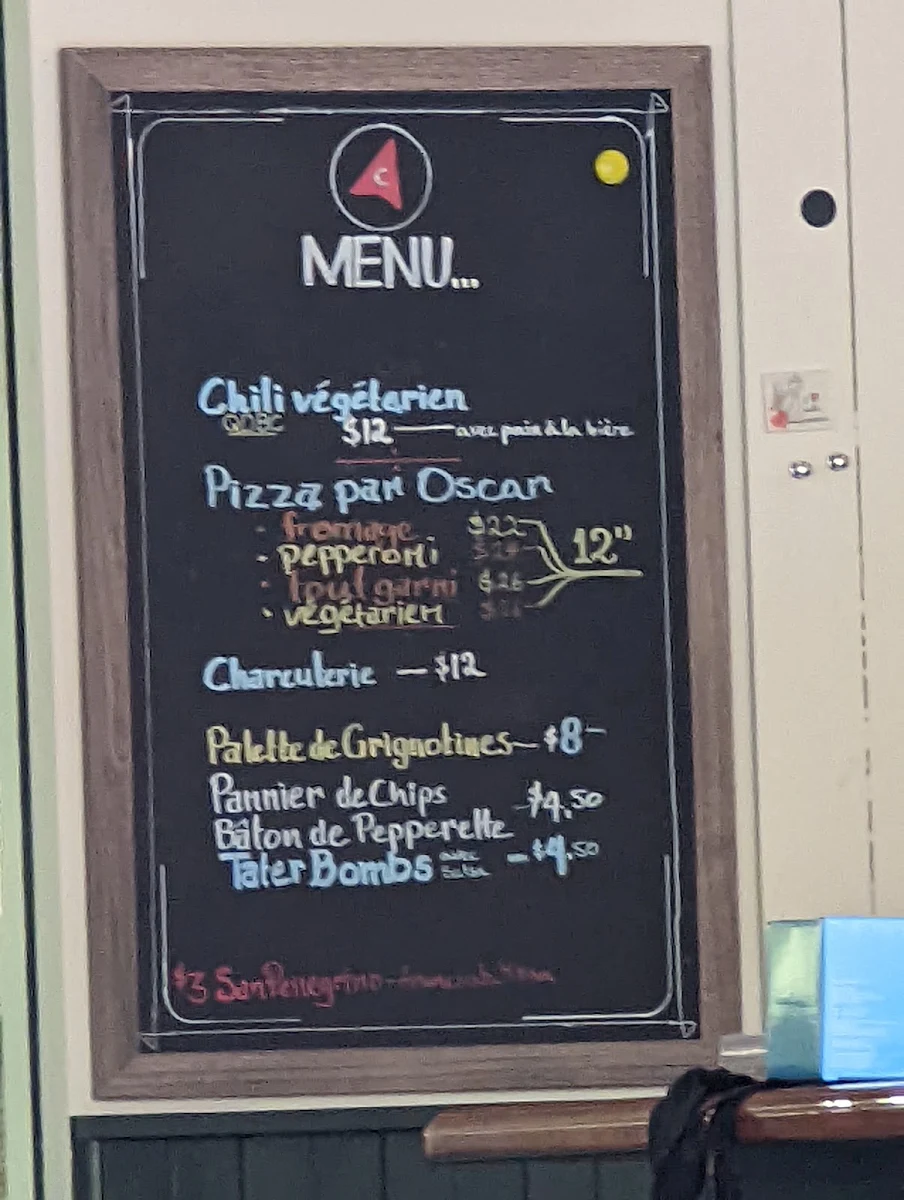 C
MENU...
Chili végétarien
$12 — avec pain à la bière
Pizza par Oscar
· fromage $22
· pepperoni
· tout garni $26
· végétarien
12"
Charcuterie — $12
Palette de Grignotines — $8
Pannier de Chips
Bâton de Pepperette - $4.50
Tater Bombs avec - $4.50
$3 San Pellegrino